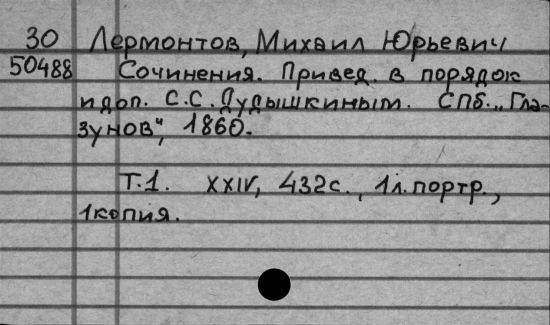 30 Лермонтов, Михаил Юрьевич
50488 Сочинения. Привед. в порядок
и доп. С.С. Дудышкиным. СПб. „Гла-
зунов“, 1860.
Т.1. XXIV, 432с., 1л. портр.,
1 копия.